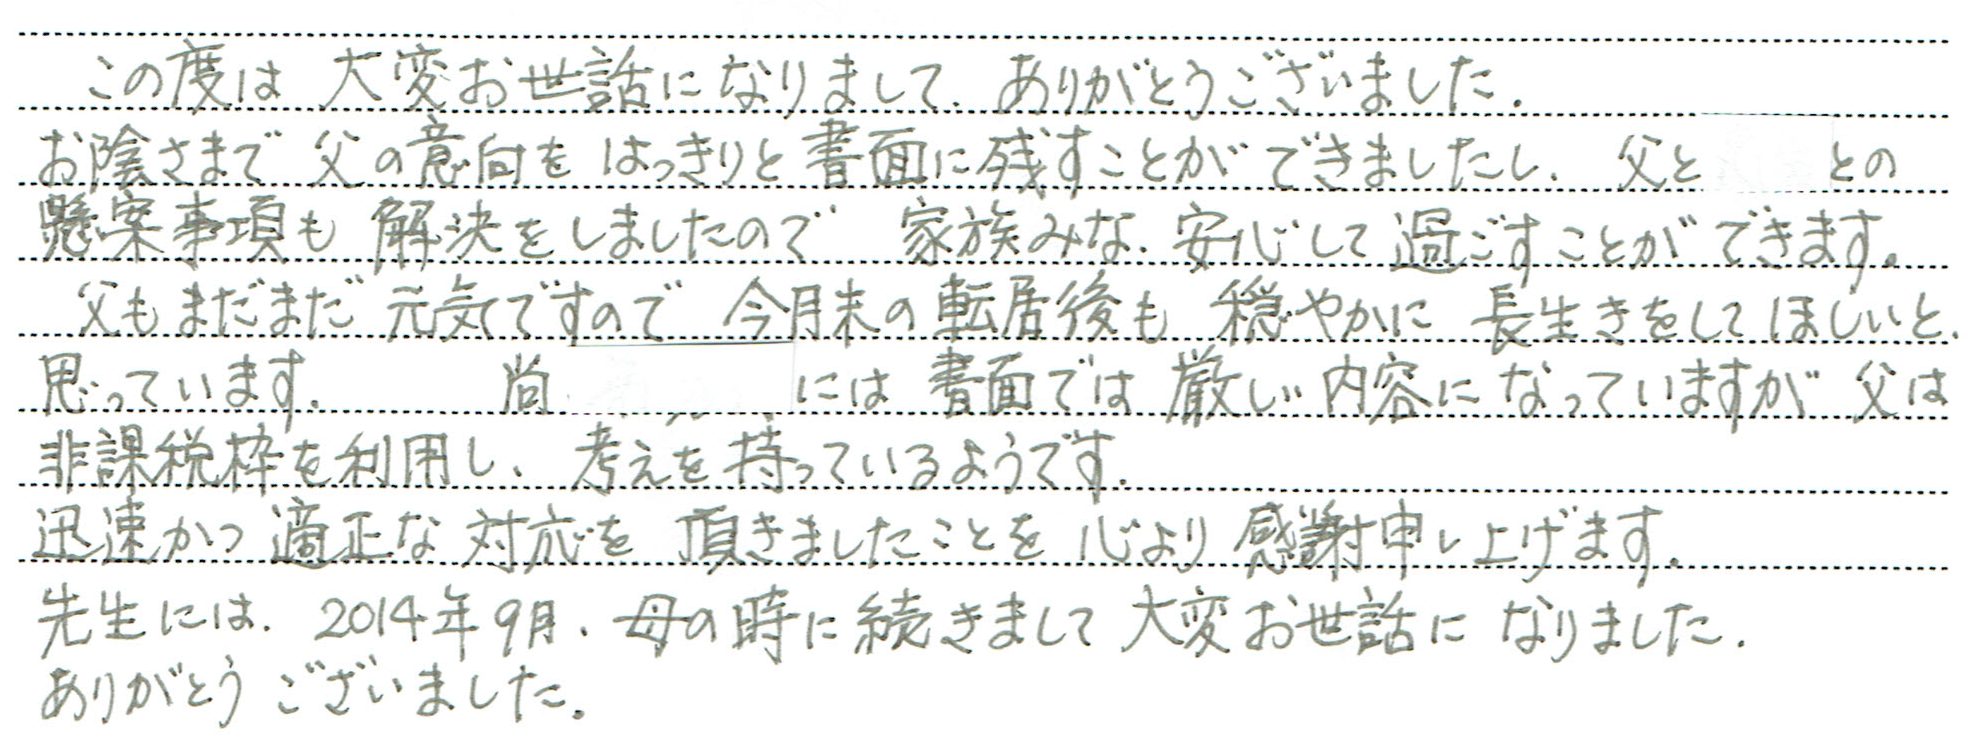 この度は 大変お世話になりまして、ありがとうございました。
お陰さまで 父の意向を はっきりと 書面に残すことが できましたし、 父と との
懸案事項も 解決をしましたので 家族みな、安心して 過ごすことが できます。
父もまだまだ 元気ですので 今月末の転居後も 穏やかに 長生きをして ほしいと、
思っています。 尚、 には 書面では 厳しい内容に なっていますが 父は
非課税枠を利用し、考えを持っているようです。
迅速かつ 適正な 対応を 頂きましたことを 心より 感謝申し上げます。
先生には、2014年9月、母の時に続きまして 大変お世話に なりました。
ありがとう ございました。